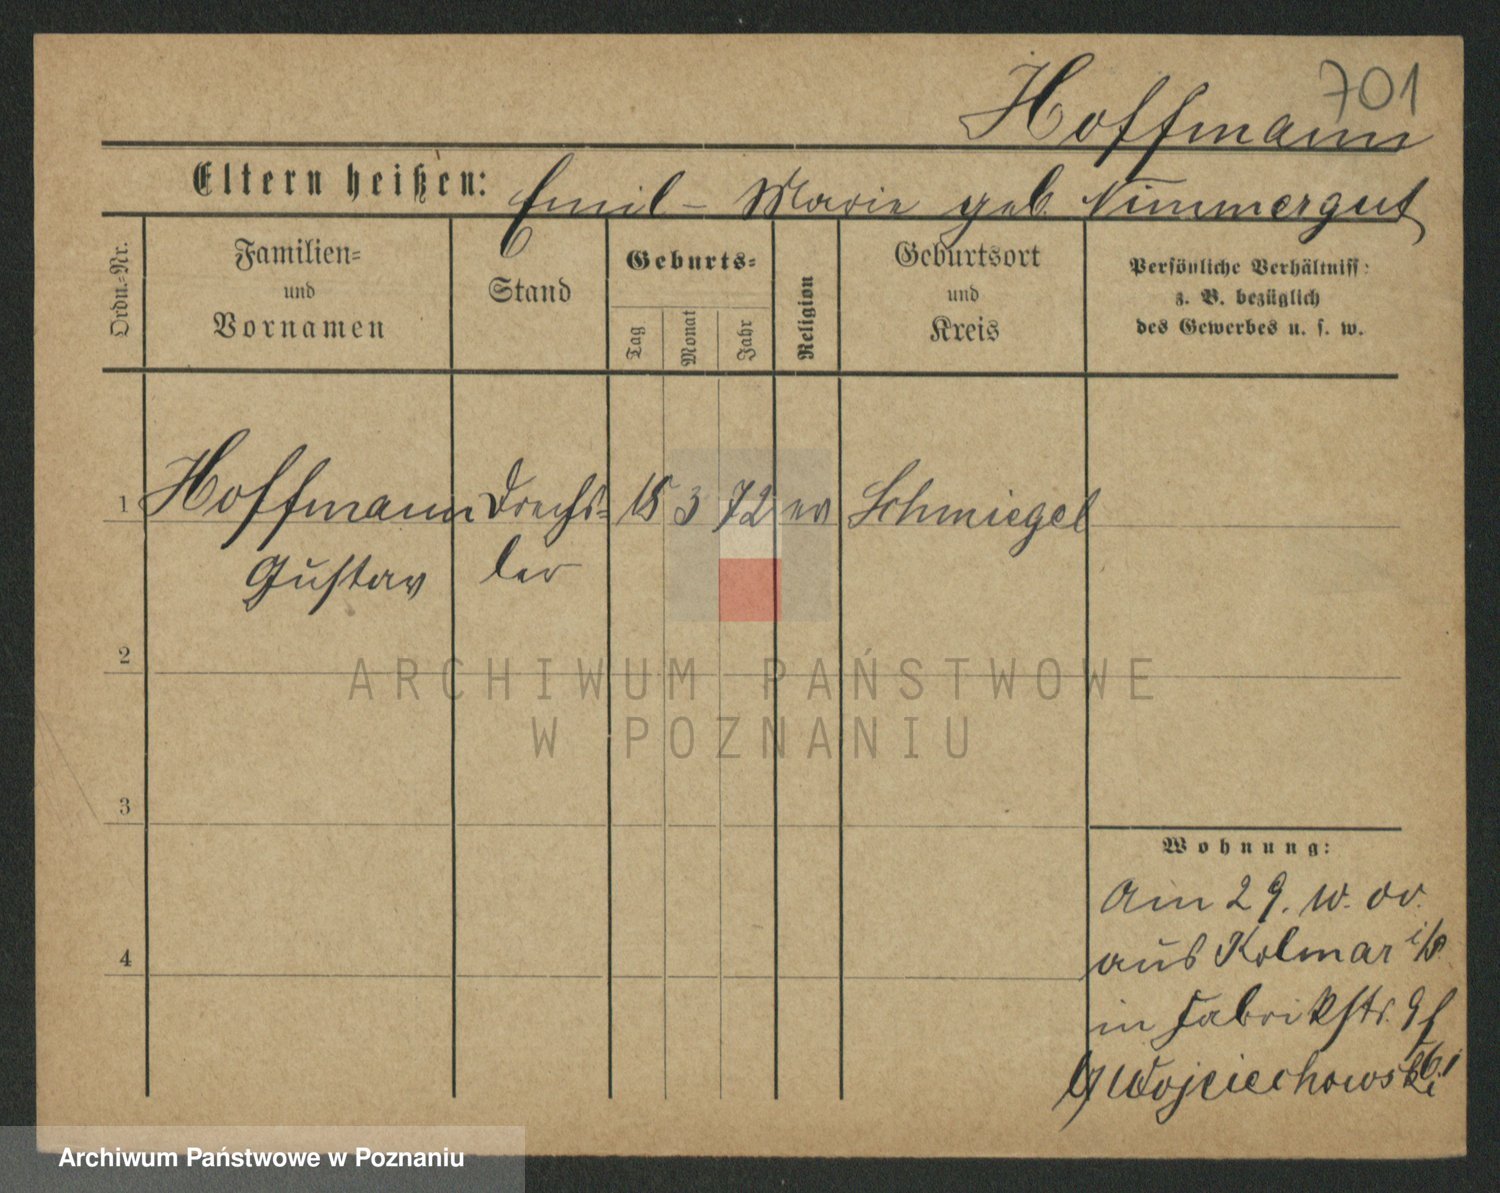 701
Hoffmann
Eltern heißen: Emil - Marie geb. Nimmergut
Ordn.-Nr.
Familien-
und
Vornamen
Stand
Geburts-
Tag
Monat
Jahr
Religion
Geburtsort
und
Kreis
Persönliche Verhältniss:
z. B. bezüglich
des Gewerbes u. s. w.
1 Hoffmann Drechs- 18 3 72 ev Schmiegel
Gustav ler
2
3
4
Wohnung:
Am 29. 10. 00.
aus Kolmar i/P.
in Fabrikstr.
Wojciechowski
ARCHIWUM PAŃSTWOWE
W POZNANIU
Archiwum Państwowe w Poznaniu